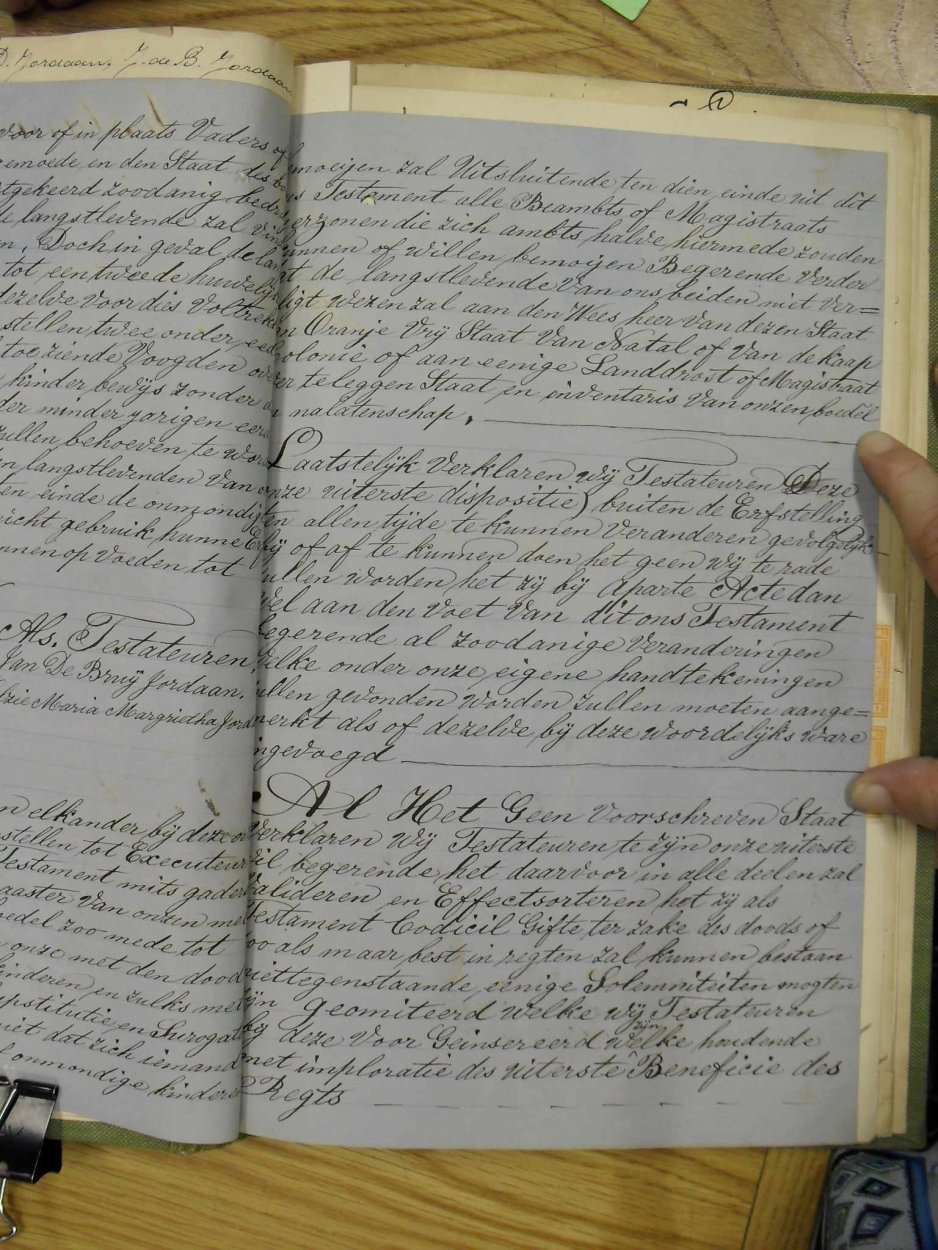 D. Jordaan, J. de B. Jordaan
voor of in plaats Vaders of
en den Staat des
zoodanig
langstlevende zal
Doch in geval de
tot een tweede huwelijk
dezelve voor dies Voltrek
stellen twee onder
toeziende Voogden
kinder bewijs zonder
minder jarigen
zullen behoeven te word
langstlevenden Van
einde de onmondig
gebruik hunne
op voeden tot
Als. Testateuren,
Jan De Bruÿ Jordaan.
Maria Margrietha Jord
elkander bij deze
stellen tot Executeur
Testament mits gader
Van onzen
boedel zoo mede tot
onze met den dood
kinderen en zulks met
en Surogat
niet dat zich iemand
onmondige kinder
moeijen zal Uitsluitende ten dien einde uit dit
Testament alle Beambts of Magistraats
erzonen die zich ambts halve hiermede zouden
unnen of willen bemoeijen Begerende Verder
at de langstlevende Van ons beiden niet Ver=
ligt wezen zal aan den Wees heer Van dezen Staat
Oranje Vrij Staat Van Natal of Van de Kaap
olonie of aan eenige Landdrost of Magistraat
er te leggen Staat en inventaris Van onzen boedel
nalatenschap.
Laatstelijk Verklaren wij Testateuren Deze
onze uiterste dispositie) buiten de Erfstelling
ten allen tijde te kunnen Veranderen gevolgelijk
bij of af te kunnen doen het geen wij te rade
ullen worden het zij bij Aparte Acte dan
Wel aan den Voet Van dit ons Testament
begerende al zoodanige Veranderingen
Welke onder onze eigene handtekeningen
ullen gevonden worden zullen moeten aange=
merkt als of dezelve bij deze woordelijks ware
ingevoegd
Al Het Geen Voorschreven Staat
Verklaren wij Testateuren te zijn onze uiterste
Wil begerende het daarvoor in alle deelen zal
Valideren en Effectsorteren het zij als
Testament Codicil Gifte ter zake des doods of
zoo als maar best in regten zal kunnen bestaan
niettegenstaande eenige Solemniteiten mogten
zijn geomiteerd welke wij Testateuren
bij deze Voor Geinsereerd welke zijn houdende
met imploratie des uiterste Beneficie des
Regts